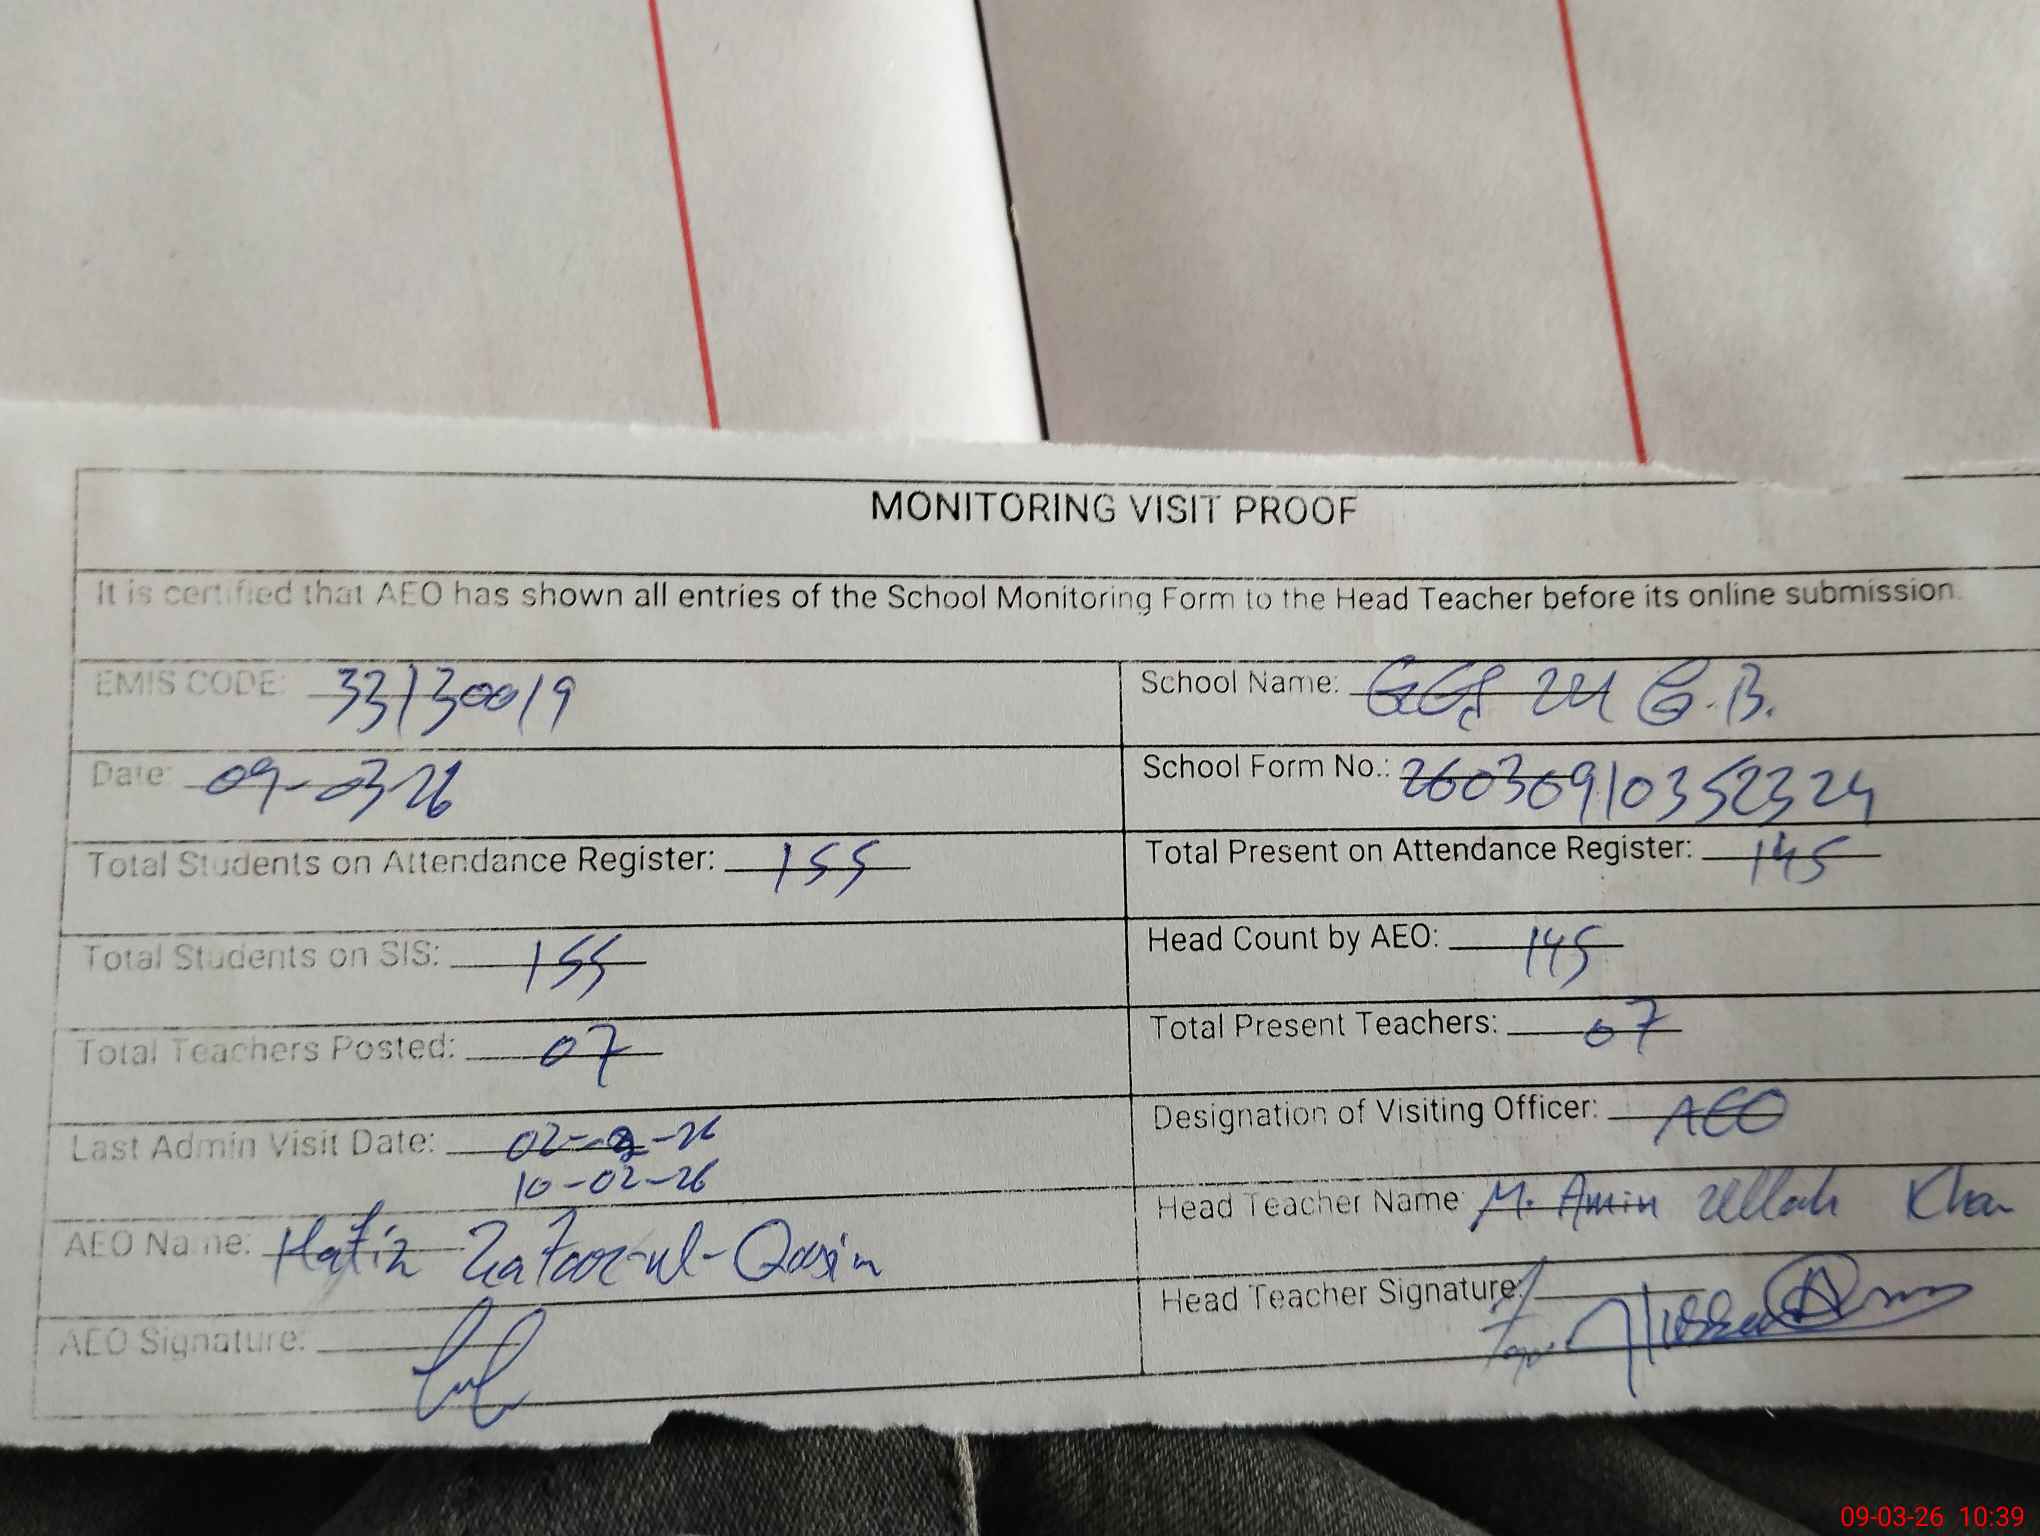 MONITORING VISIT PROOF
It is certified that AEO has shown all entries of the School Monitoring Form to the Head Teacher before its online submission.
EMIS CODE: 33130019
School Name: GGS 24 G.B.
Date: 09-03-26
School Form No.: 26030910352324
Total Students on Attendance Register: 155
Total Present on Attendance Register: 145
Total Students on SIS: 155
Head Count by AEO: 145
Total Teachers Posted: 07
Total Present Teachers: 07
Last Admin Visit Date: 02- -26
10-02-26
Designation of Visiting Officer: AEO
Head Teacher Name: M. Amin Ullah Khan
AEO Name: Hafiz -ul-Qasim
Head Teacher Signature:
AEO Signature:
09-03-26 10:39